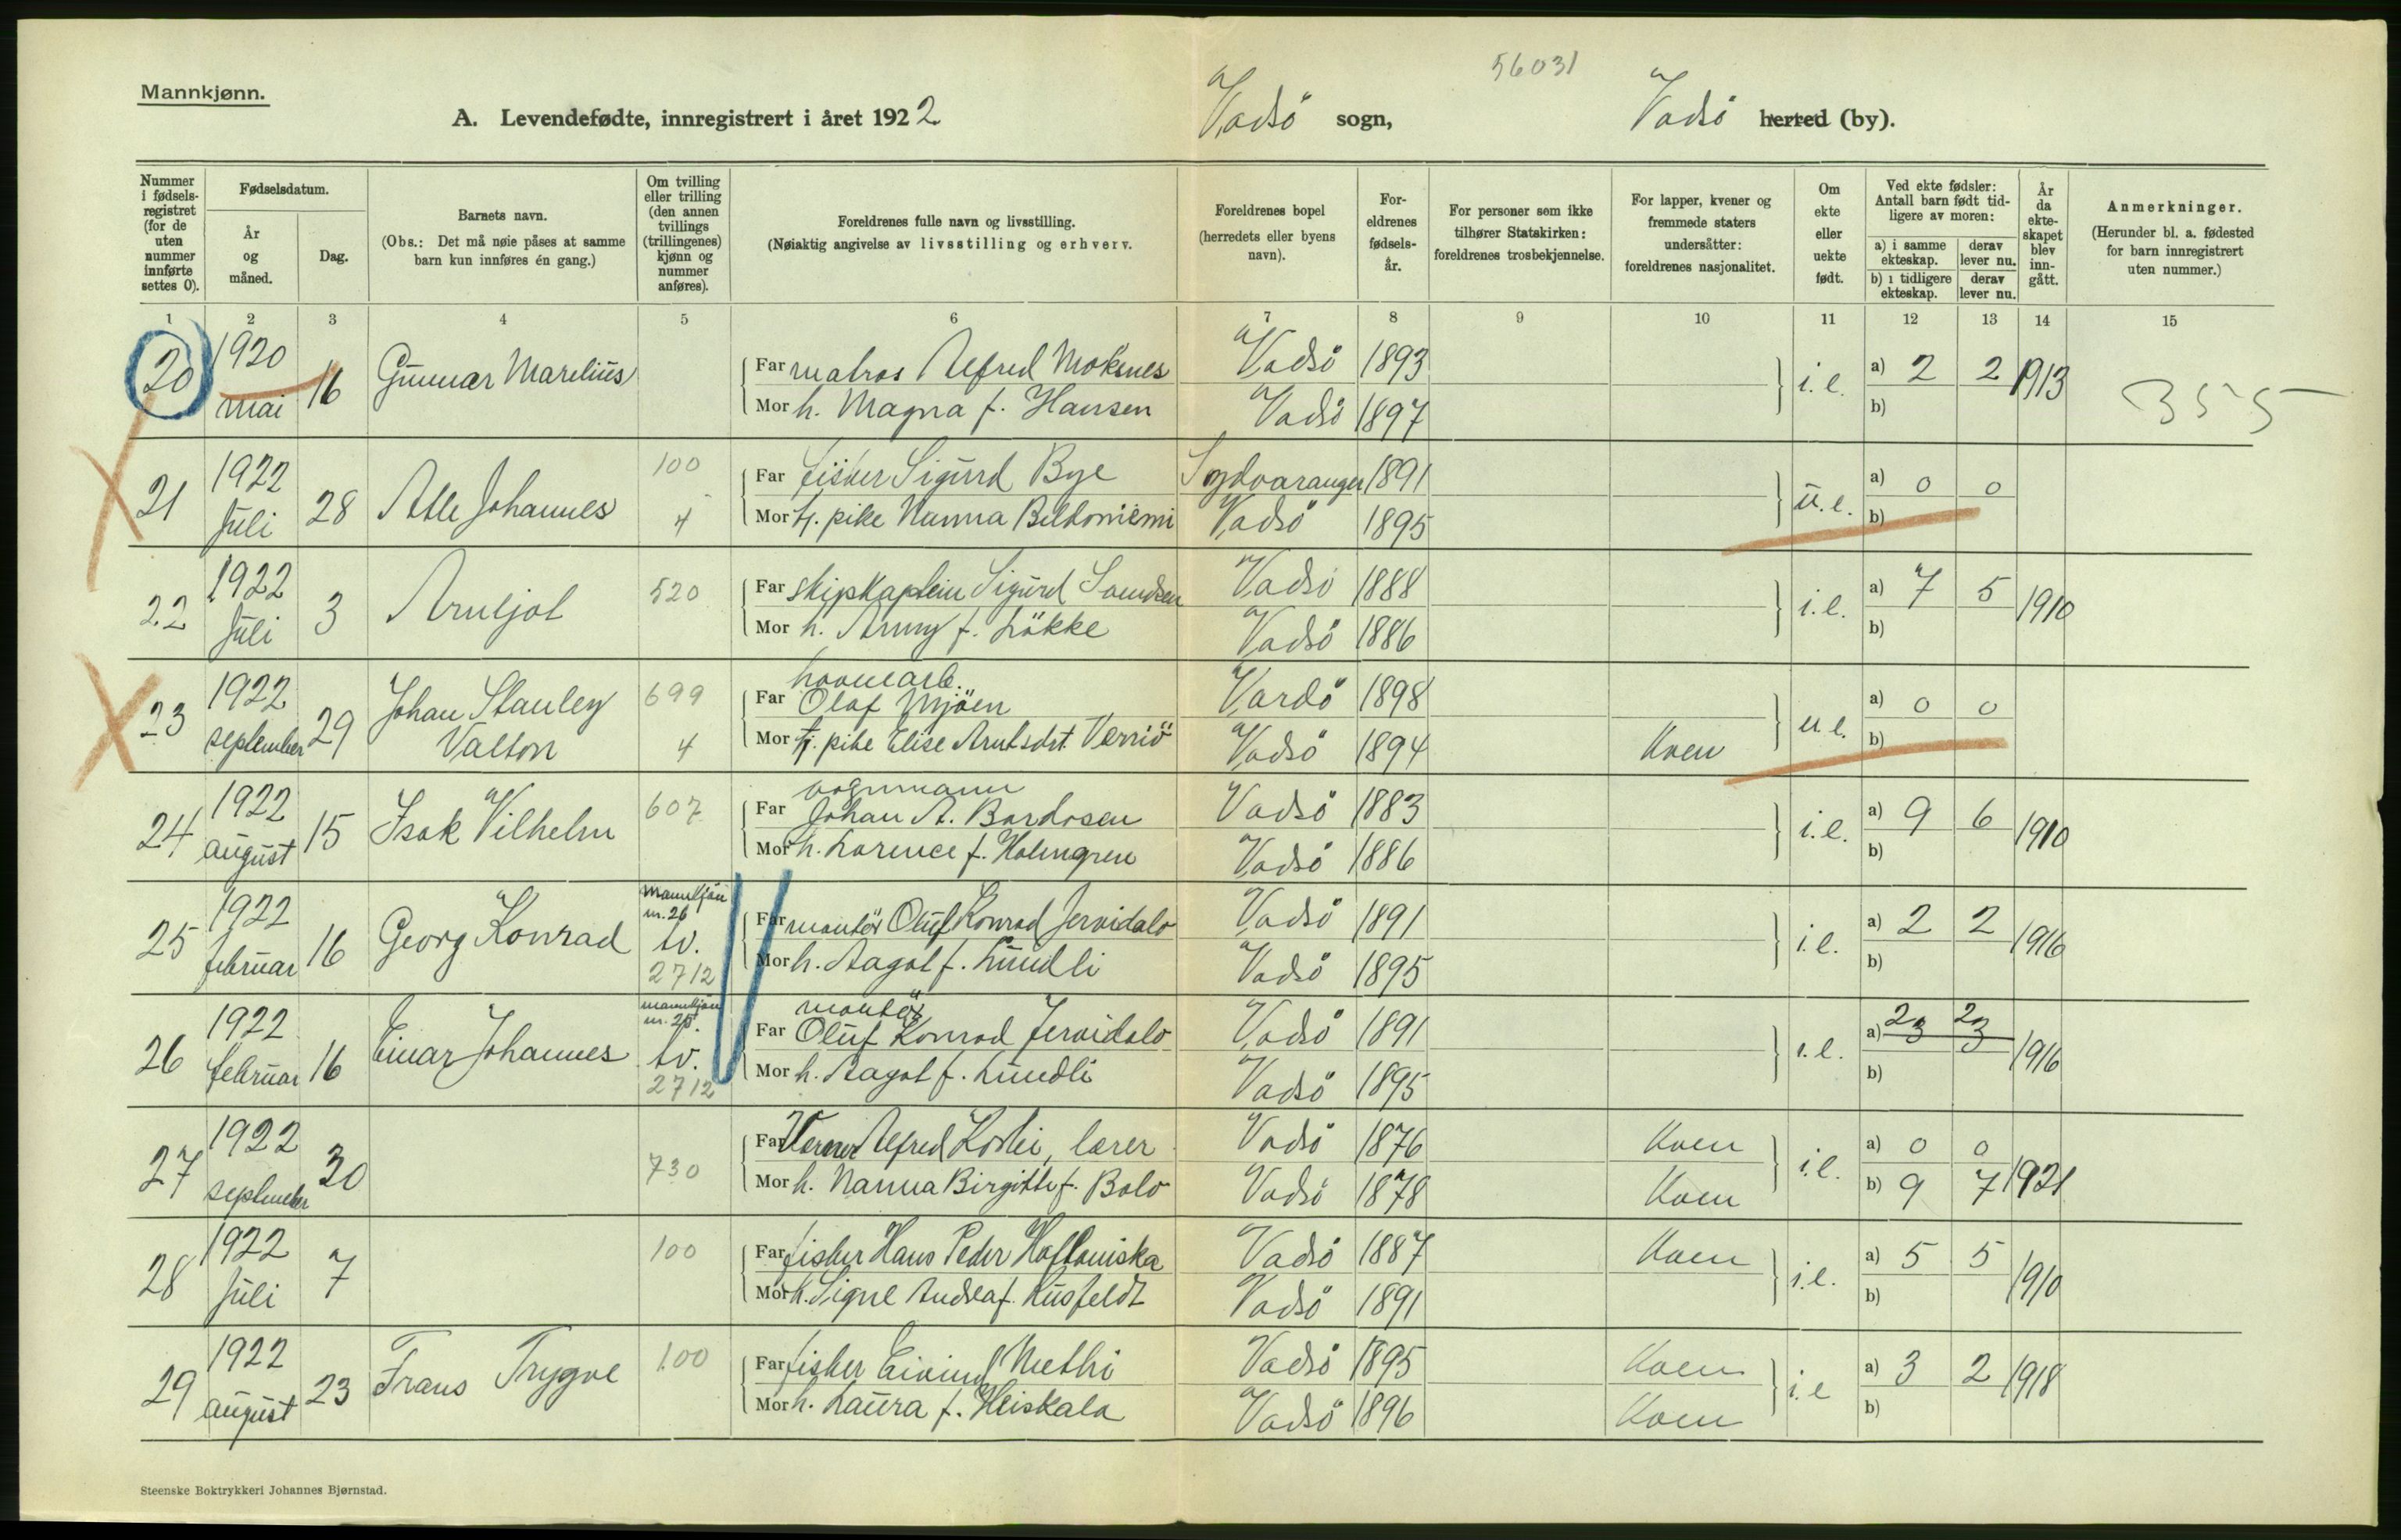 56031
Mannkjønn.
A. Levendefødte, innregistrert i året 1922. Vadsö sogn, Vadsö herred (by).
Nummer i fødsels-registret (for de uten nummer innførte settes 0).
Fødselsdatum.
År og måned.
Dag.
Barnets navn.
(Obs.: Det må nøie påses at samme barn kun innføres én gang.)
Om tvilling eller trilling (den annen tvillings (trillingenes) kjønn og nummer anføres).
Foreldrenes fulle navn og livsstilling.
(Nøiaktig angivelse av livsstilling og erhverv.
Foreldrenes bopel (herredets eller byens navn).
For-eldrenes fødsels-år.
For personer som ikke tilhører Statskirken: foreldrenes trosbekjennelse.
For lapper, kvener og fremmede staters undersåtter: foreldrenes nasjonalitet.
Om ekte eller uekte født.
Ved ekte fødsler: Antall barn født tid-ligere av moren:
a) i samme ekteskap. derav lever nu.
b) i tidligere ekteskap. derav lever nu.
År da ekte-skapet blev inn-gått.
Anmerkninger.
(Herunder bl. a. fødested for barn innregistrert uten nummer.)
1 2 3 4 5 6 7 8 9 10 11 12 13 14 15
20 1920 mai 16 Gunnar Marelius
Far matros Alfred Moksnes Vadsö 1893 i.e. a) 2 2 1913 355
Mor h. Magna f. Hansen Vadsö 1897 b)
21 1922 Juli 28 Atle Johannes 100 4
Far fisker Sigurd Bye Sydvaranger 1891 u.e. a) 0 0
Mor tj. pike Nanna Beldoniemi Vadsö 1895 b)
22 1922 Juli 3 Arnljot 520
Far skipskaptein Sigurd Vadsö 1888 i.e. a) 7 5 1910
Mor h. f. Lökke Vadsö 1886 b)
23 1922 september 29 Johan Stanley Valton 699 4
havnearb.
Far Olaf Mjöen Vardö 1898 u.e. a) 0 0
Mor tj. pike Elise Arntsdt. Verriö Vadsö 1894 Kven b)
24 1922 august 15 Isak Vilhelm 607
vognmann
Far Johan A. Bardosen Vadsö 1883 i.e. a) 9 6 1910
Mor h. Lorence f. Holmgren Vadsö 1886 b)
25 1922 februar 16 Georg Konrad mannkjön nr. 26 tv. 2712
Far montör Oluf Konrad Jervidalo Vadsö 1891 i.e. a) 2 2 1916
Mor h. Aagot f. Lundli Vadsö 1895 b)
26 1922 februar 16 Einar Johannes mannkjön nr. 25. tv. 2712
montör
Far Oluf Konrad Jervidalo Vadsö 1891 i.e. a) 2 3 2 3 1916
Mor h. Aagot f. Lundli Vadsö 1895 b)
27 1922 september 30 730
Far Verner Alfred Koski, lærer Vadsö 1876 Kven i.e. a) 0 0
Mor h. Nanna Birgitte f. Balo Vadsö 1878 Kven b) 9 7 1921
28 1922 Juli 7 100
Far fisker Hans Peder Vadsö 1887 Kven i.e. a) 5 5 1910
Mor h. Signe Andrea f. Kusfeldt Vadsö 1891 b)
29 1922 august 23 Frans Trygve 100
Far fisker Eivind Methi Vadsö 1895 Kven i.e a) 3 2 1918
Mor h. Laura f. Heiskala Vadsö 1896 Kven b)
Steenske Boktrykkeri Johannes Bjørnstad.